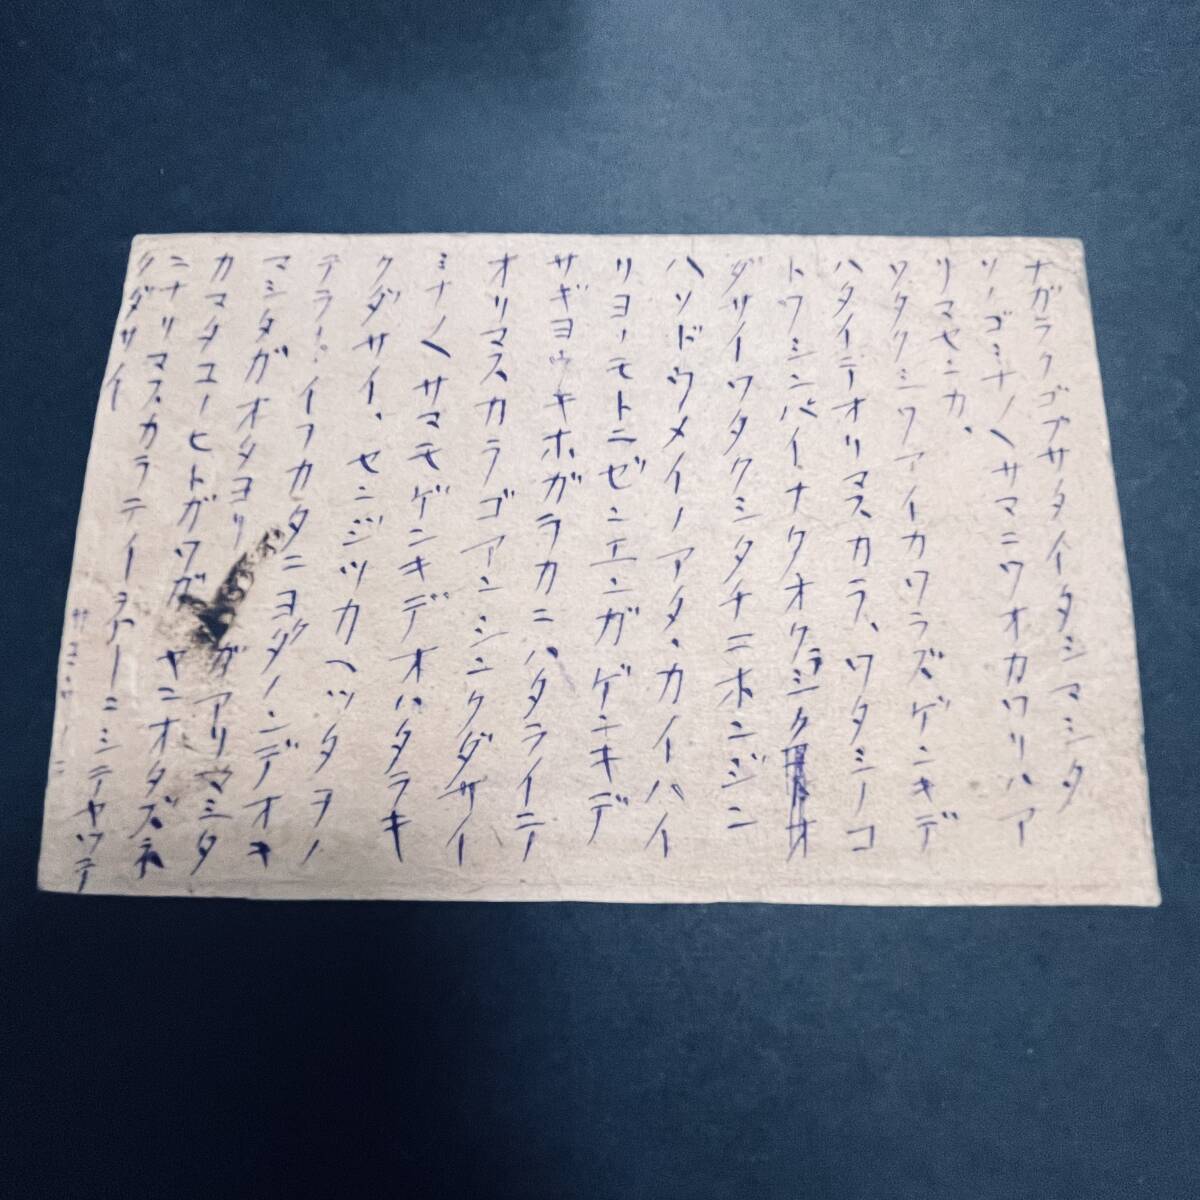 ナガラクゴブサタイタシマシタ
ソノゴミナノ\サマニワオカワリハア
リマセンカ、
ワタクシワアイカワラズゲンキデ
ハタイテオリマス、カラ、ワタシノコ
トワシンパイナクオクラシク オ
ダサイーワタクシタチニホンジン
ハソドウメイノアタ、カイハイ
リヨノモトニゼンエンガゲンキデ
サギヨウキホガラカニハタライテ
オリマス、カラゴアンシンクダサイ
ミナノ\サマモゲンキデオハタラキ
クダサイ、センジツカヘツタヲノ
テラノ イフカタニヨダノンデオキ
マシタガオタヨリ ガアリマシタ
カマタユーヒトガワガ ヤニオタズネ
ニナリマス、カラテイ ニシテヤツテ
クダサイ